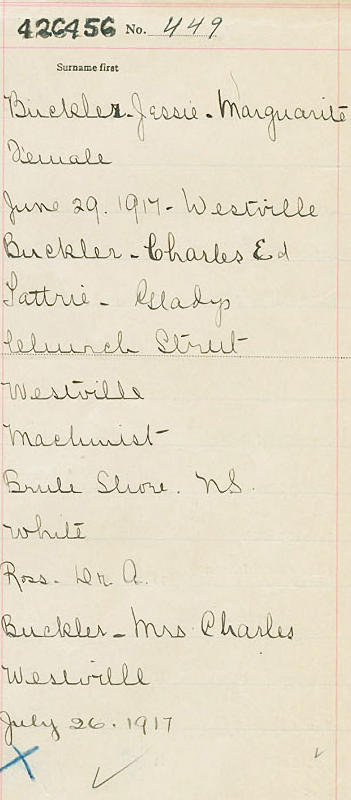 426456 No. 449
Surname first
Buckler. Jessie. Marguarite
Female
June 29. 1917 - Westville
Buckler - Charles Ed
Tattrie - Gladys
Church Street
Westville
Machinist
Brule Shore. NS.
White
Ross. Dr A.
Buckler - Mrs Charles
Westville
July 26. 1917